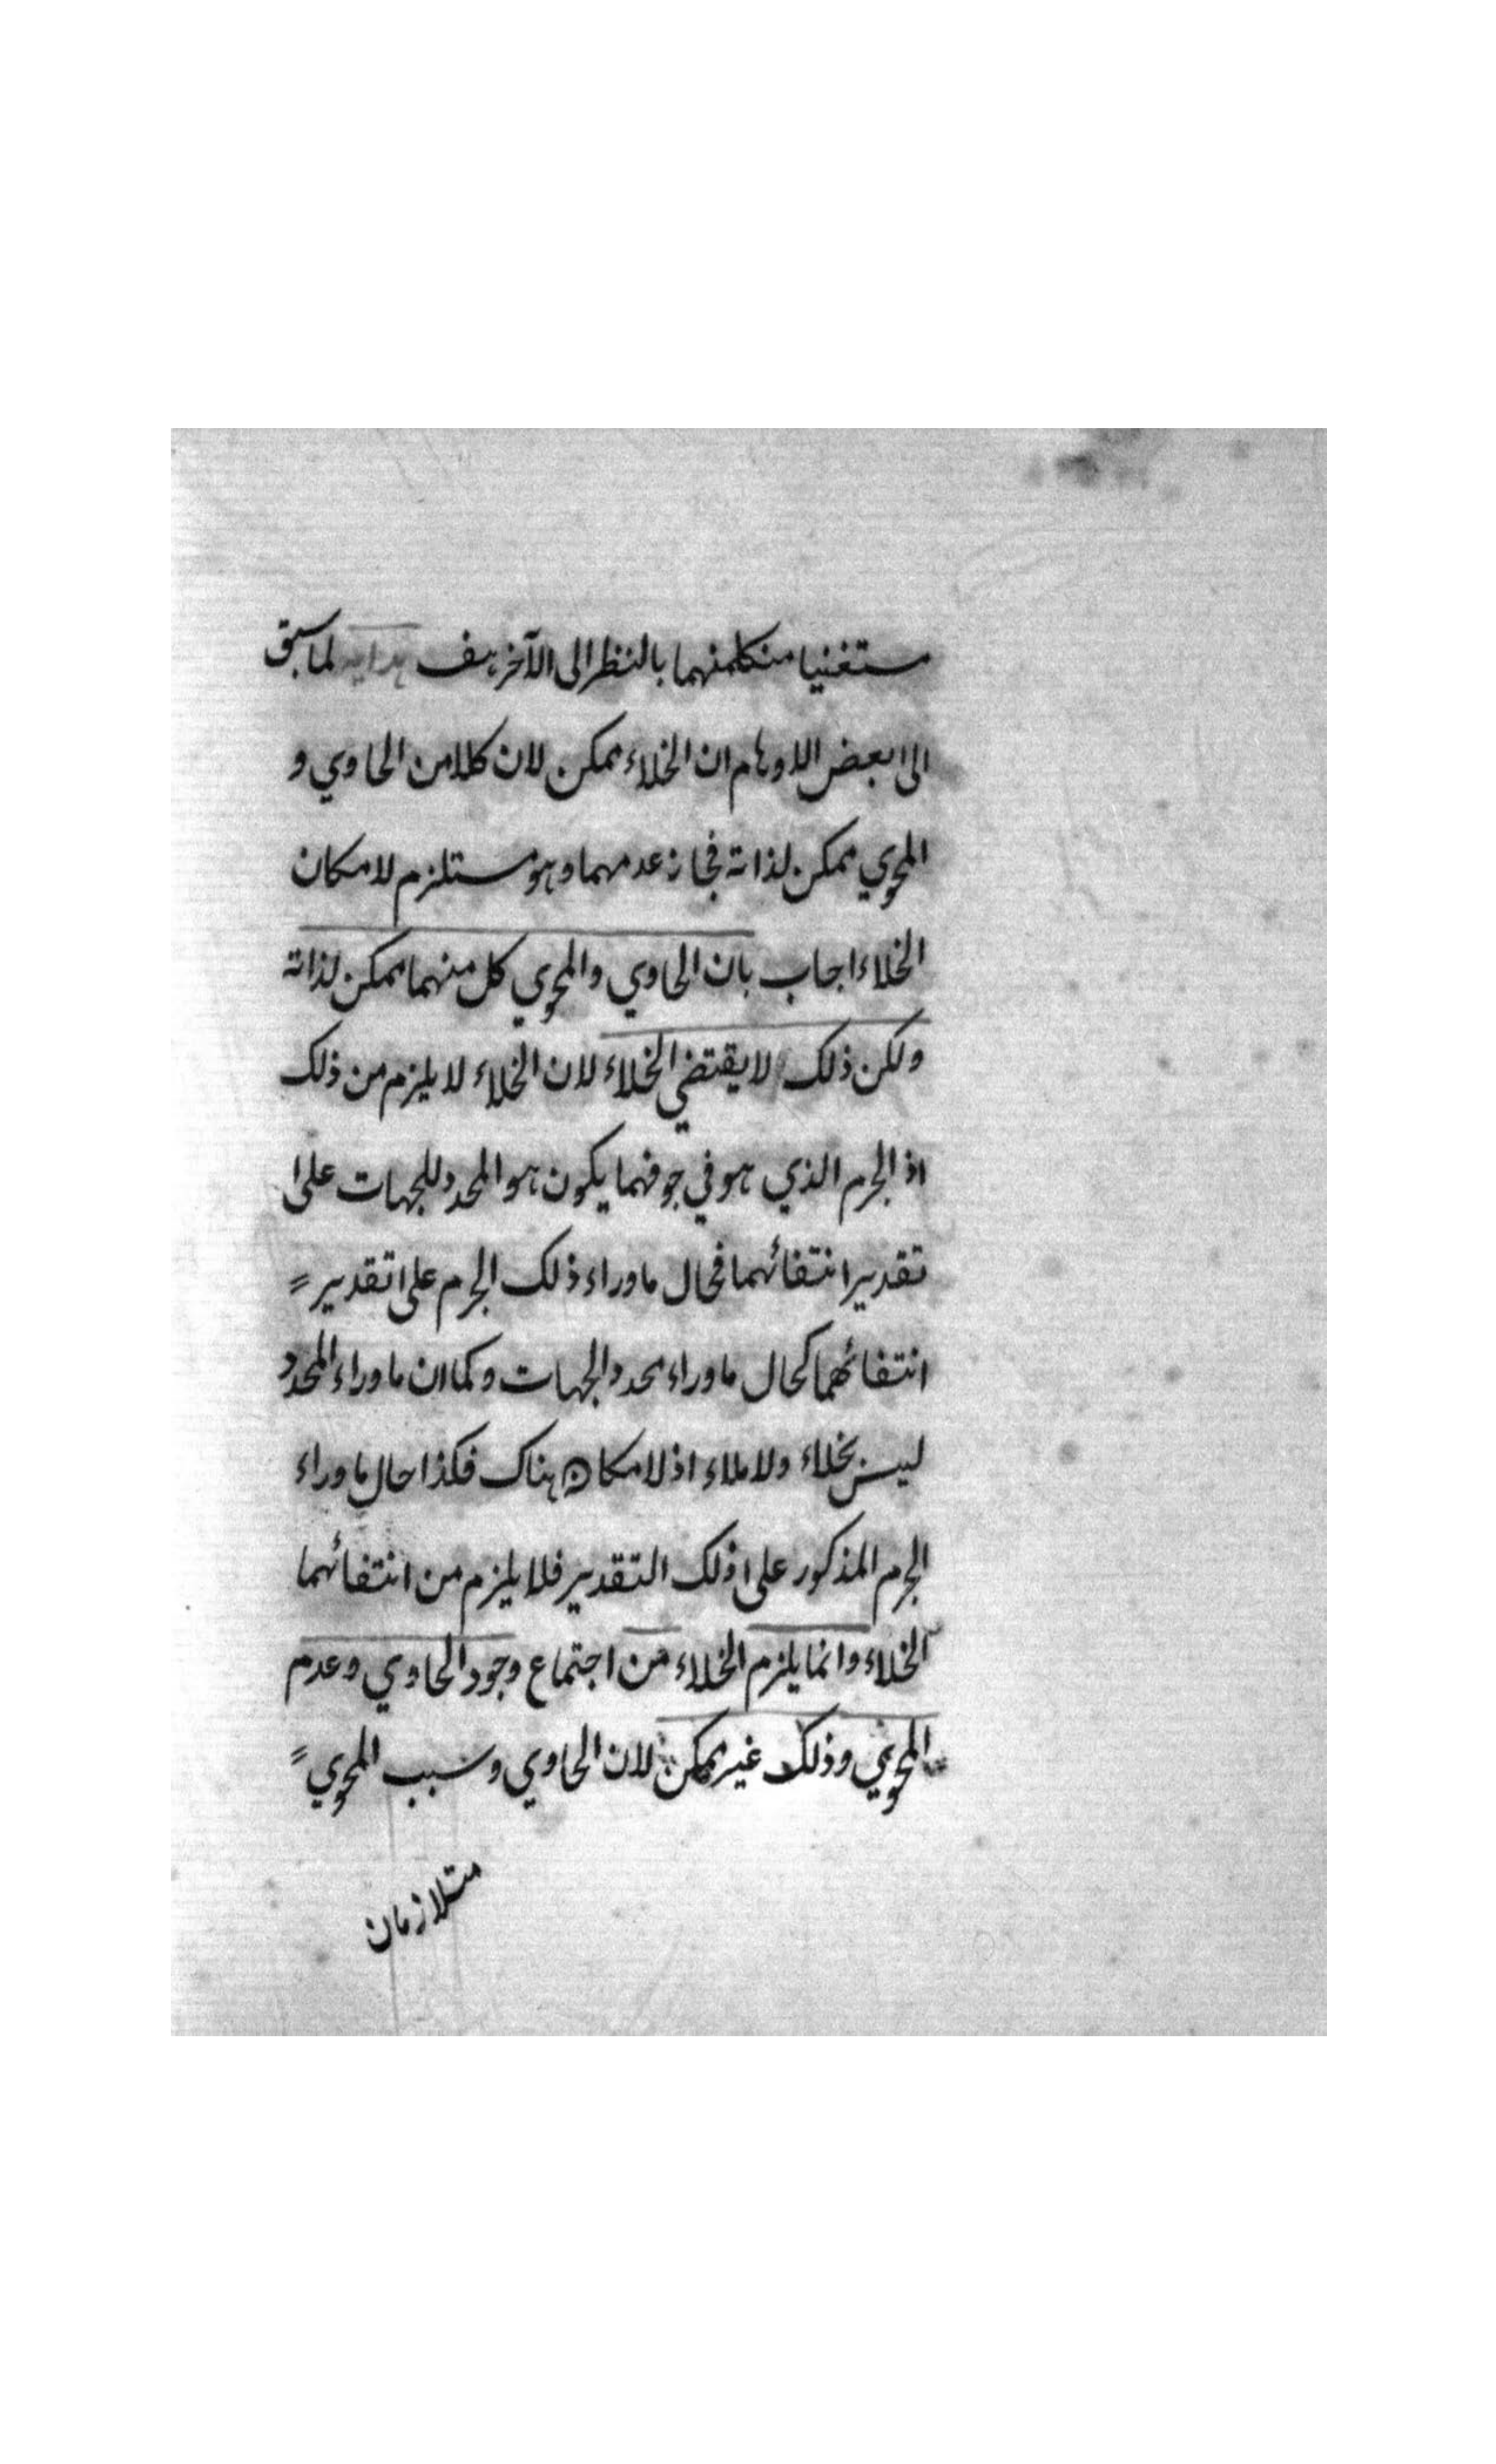 مستغنيا منكلمنهما بالنظر الى الآخر هف هداية لما سبق
الى بعض الاوهام ان الخلاء ممكن لان كلا من الحاوي و
المحوي ممكن لذاته فجاز عدمهما وهو مستلزم لامكان
الخلاء اجاب بان الحاوي والمحوي كل منهما ممكن لذاته
ولكن ذلك لا يقتضي الخلاء لان الخلاء لا يلزم من ذلك
اذ الجرم الذي هو في جوفهما يكون هو المحدد للجهات على
تقدير انتفائهما فحال ما وراء ذلك الجرم على تقدير
انتفائهما كحال ما وراء محدد الجهات وكما ان ما وراء المحدد
ليس بخلاء ولا ملاء اذ لا مكان هناك فكذا حال ما وراء
الجرم المذكور على ذلك التقدير فلا يلزم من انتفائهما
الخلاء وانما يلزم الخلاء من اجتماع وجود الحاوي وعدم
المحوي وذلك غير ممكن لان الحاوي وسبب المحوي
متلازمان